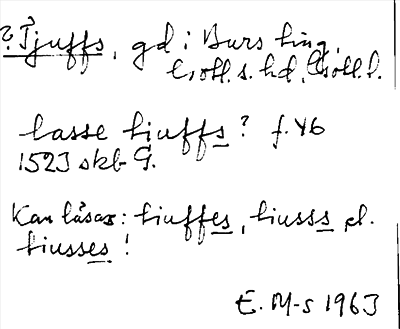 ?Tjuffs, gd i Burs ting,
Gotl.s. hd, Gotl. l.
lasse tiuffs? f. 46
1523 skb G.
Kan läsas: tiuffes, tiusss el.
tiusses!
E. M-s 1963